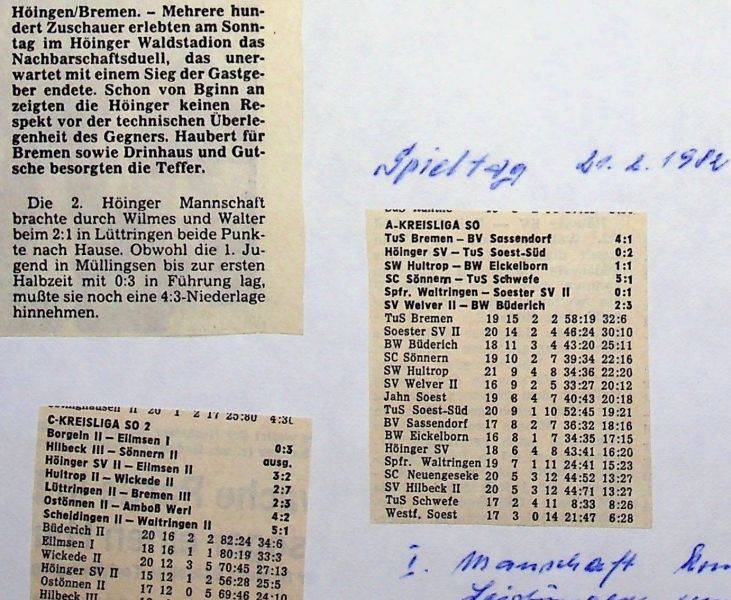 Höingen/Bremen. – Mehrere hun-
dert Zuschauer erlebten am Sonn-
tag im Höinger Waldstadion das
Nachbarschaftsduell, das uner-
wartet mit einem Sieg der Gastge-
ber endete. Schon von Bginn an
zeigten die Höinger keinen Re-
spekt vor der technischen Überle-
genheit des Gegners. Haubert für
Bremen sowie Drinhaus und Gut-
sche besorgten die Teffer.
Die 2. Höinger Mannschaft
brachte durch Wilmes und Walter
beim 2:1 in Lüttringen beide Punk-
te nach Hause. Obwohl die 1. Ju-
gend in Müllingsen bis zur ersten
Halbzeit mit 0:3 in Führung lag,
mußte sie noch eine 4:3-Niederlage
hinnehmen.
Spieltag 2.1982
A-KREISLIGA SO
TuS Bremen – BV Sassendorf 4:1
Höinger SV – TuS Soest-Süd 0:2
SW Hultrop – BW Eickelborn 1:1
SC Sönnern – TuS Schwefe 5:1
Spfr. Waltringen – Soester SV II 0:1
SV Welver II – BW Büderich 2:3
TuS Bremen 19 15 2 2 58:19 32:6
Soester SV II 20 14 2 4 46:24 30:10
BW Büderich 18 11 3 4 43:20 25:11
SC Sönnern 19 10 2 7 39:34 22:16
SW Hultrop 21 9 4 8 34:36 22:20
SV Welver II 16 9 2 5 33:27 20:12
Jahn Soest 19 6 4 7 40:43 20:18
TuS Soest-Süd 20 9 1 10 52:45 19:21
BV Sassendorf 17 8 2 7 36:32 18:16
BW Eickelborn 16 8 1 7 34:35 17:15
Höinger SV 18 6 4 8 43:41 16:20
Spfr. Waltringen 19 7 1 11 24:41 15:23
SC Neuengeseke 20 5 3 12 44:52 13:27
SV Hilbeck II 20 5 3 12 44:71 13:27
TuS Schwefe 17 2 4 11 8:33 8:26
Westf. Soest 17 3 0 14 21:47 6:28
II 20 1 2 17 25:80
C-KREISLIGA SO 2
Borgeln II – Ellmsen I 0:3
Hilbeck III – Sönnern II ausg.
Höinger SV II – Ellmsen II 3:2
Hultrop II – Wickede II 2:7
Lüttringen II – Bremen III 2:3
Ostönnen II – Amboß Werl 4:2
Scheidingen II – Waltringen II 5:1
Büderich II 20 16 2 2 82:24 34:6
Ellmsen I 18 16 1 1 80:19 33:3
Wickede II 20 12 3 5 70:45 27:13
Höinger SV II 15 12 1 2 56:28 25:5
Ostönnen II 17 12 0 5 69:46 24:10
Hilbeck III
I. Manschaft